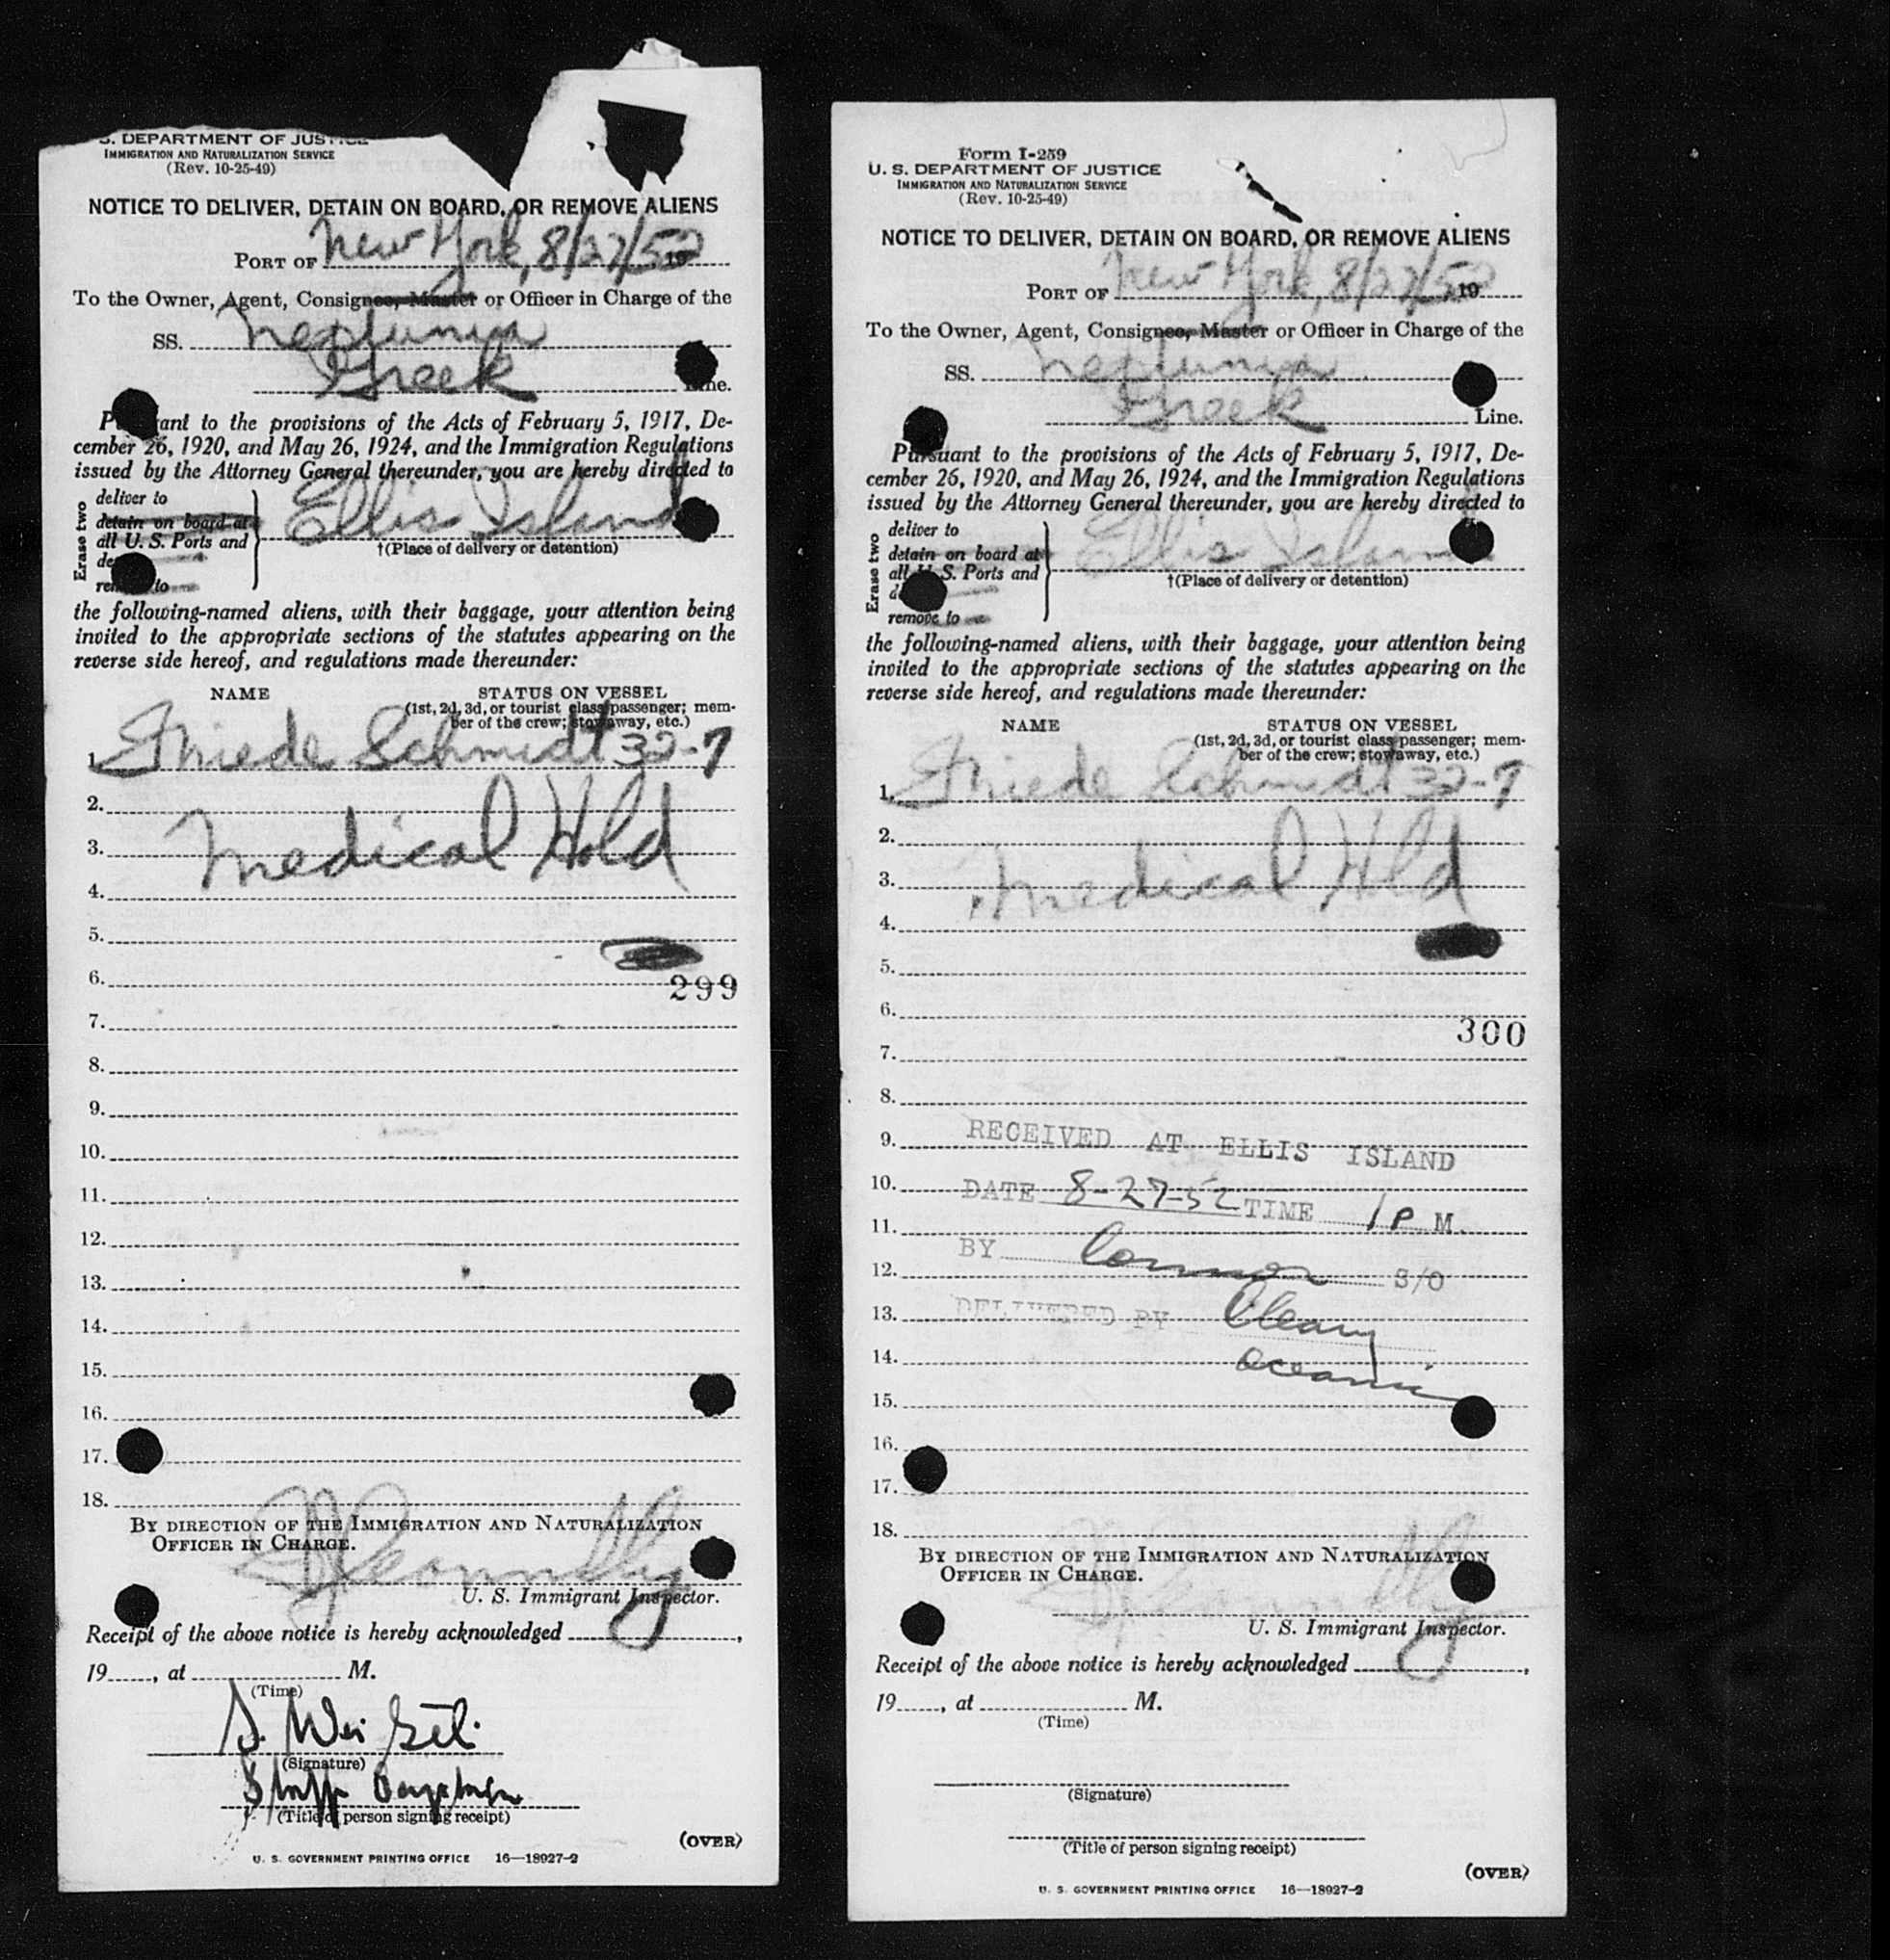 DEPARTMENT OF JUS
IMMIGRATION AND NATURALIZATION SERVICE
(Rev. 10-25-49)
NOTICE TO DELIVER, DETAIN ON BOARD, OR REMOVE ALIENS
PORT OF New York, 8/27/52 19
To the Owner, Agent, Consignee, Master or Officer in Charge of the
SS. Neptunia
Greek Line.
Pursuant to the provisions of the Acts of February 5, 1917, De-
cember 26, 1920, and May 26, 1924, and the Immigration Regulations
issued by the Attorney General thereunder, you are hereby directed to
Erase two
deliver to
detain on board at
all U. S. Ports and
remove to
Ellis Island
†(Place of delivery or detention)
the following-named aliens, with their baggage, your attention being
invited to the appropriate sections of the statutes appearing on the
reverse side hereof, and regulations made thereunder:
NAME STATUS ON VESSEL
(1st, 2d, 3d, or tourist class passenger; mem-
ber of the crew; stowaway, etc.)
1. Schmidt 32-7
2.
3. Medical Hold
4.
5.
6. 299
7.
8.
9.
10.
11.
12.
13.
14.
15.
16.
17.
18.
BY DIRECTION OF THE IMMIGRATION AND NATURALIZATION
OFFICER IN CHARGE.
U. S. Immigrant Inspector.
Receipt of the above notice is hereby acknowledged ,
19 , at M.
(Time)
(Signature)
(Title of person signing receipt)
(OVER)
U. S. GOVERNMENT PRINTING OFFICE 16—18927-2
Form I-259
U. S. DEPARTMENT OF JUSTICE
IMMIGRATION AND NATURALIZATION SERVICE
(Rev. 10-25-49)
NOTICE TO DELIVER, DETAIN ON BOARD, OR REMOVE ALIENS
PORT OF New York, 8/27/52 19
To the Owner, Agent, Consignee, Master or Officer in Charge of the
SS. Neptunia
Greek Line.
Pursuant to the provisions of the Acts of February 5, 1917, De-
cember 26, 1920, and May 26, 1924, and the Immigration Regulations
issued by the Attorney General thereunder, you are hereby directed to
Erase two
deliver to
detain on board at
all U. S. Ports and
remove to
Ellis Island
†(Place of delivery or detention)
the following-named aliens, with their baggage, your attention being
invited to the appropriate sections of the statutes appearing on the
reverse side hereof, and regulations made thereunder:
NAME STATUS ON VESSEL
(1st, 2d, 3d, or tourist class passenger; mem-
ber of the crew; stowaway, etc.)
1. Schmidt 32-7
2.
3. Medical Hold
4.
5.
6.
300
7.
8.
9. RECEIVED AT ELLIS ISLAND
10. DATE 8-27-52 TIME 1 P M.
11.
BY Connor S/O
12.
13. DELIVERED BY Cleary
14. Oceanic
15.
16.
17.
18.
BY DIRECTION OF THE IMMIGRATION AND NATURALIZATION
OFFICER IN CHARGE.
U. S. Immigrant Inspector.
Receipt of the above notice is hereby acknowledged ,
19 , at M.
(Time)
(Signature)
(Title of person signing receipt)
(OVER)
U. S. GOVERNMENT PRINTING OFFICE 16—18927-2